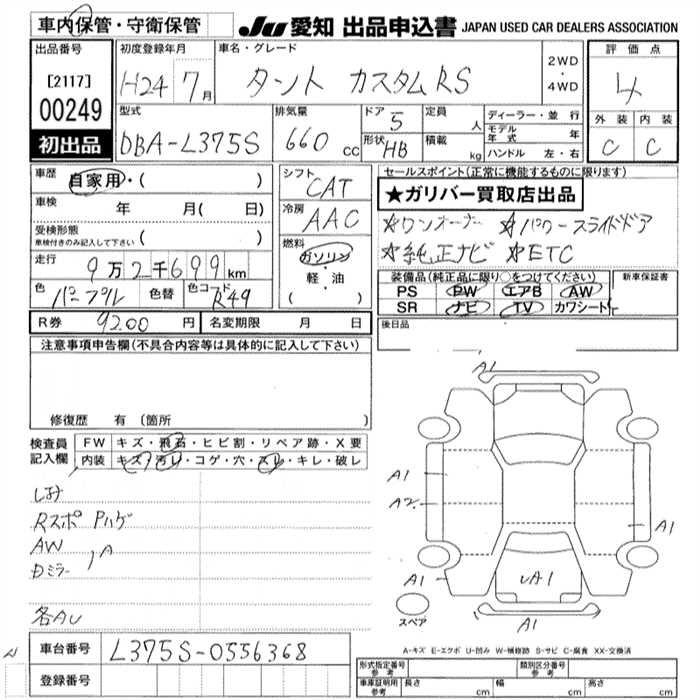 車内保管・守衛保管
JU 愛知 出品申込書 JAPAN USED CAR DEALERS ASSOCIATION
出品番号
[2117]
00249
初出品
初度登録年月
H24 7月
車名・グレード
タント カスタムRS
2WD
・
4WD
評価点
4
外装 内装
C C
型式
DBA-L375S
排気量
660 cc
ドア
5
形状
HB
定員
人
積載
kg
ディーラー・並行
モデル年式 年
ハンドル 左・右
車歴
自家用・( )
車検 年 月( 日)
受検形態
車検付きのみ記入して下さい ( )
走行
9万2千699km
色
パープル
色替
色コード
R49
シフト
CAT
冷房
AAC
燃料
ガソリン
・
軽・油
( )
セールスポイント(正常に機能するものに限ります)
★ガリバー買取店出品
☆ワンオーナー ☆パワースライドドア
☆純正ナビ ☆ETC
装備品(純正品に限り○をつけてください)
新車保証書
PS PW エアB AW
SR ナビ TV カワシート
後日品
R券 9200 円
名変期限 月 日
注意事項申告欄(不具合内容等は具体的に記入して下さい)
修復歴 有 〔箇所 〕
検査員記入欄
FW キズ・飛石・ヒビ割・リペア跡・X要
内装 キズ・汚レ・コゲ・穴・スレ・キレ・破レ
Rスポ Pハゲ
AW
Dミラー A
各AU
A1
A1
A2
A1
A1
A1
A1
スペア
A-キズ E-エクボ U-凹み W-補修跡 S-サビ C-腐食 XX-交換済
車台番号
L375S-0556368
登録番号
形式指定番号
参考
類別区分番号
参考
車庫証明用
参考
長さ cm 幅 cm 高さ cm